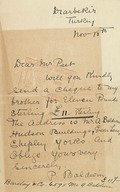 Diarbekir
Turkey
Nov 18th
Dear Mr Peet
Will you Kindly
Send a cheque to my
brother for Eleven Pound
Sterling £11. Sterling
The Address is Mr A Baldwin
Hudson Buildings
Shepley Yorks And
Oblige Yours Very
Sincerely
P. Baldwin